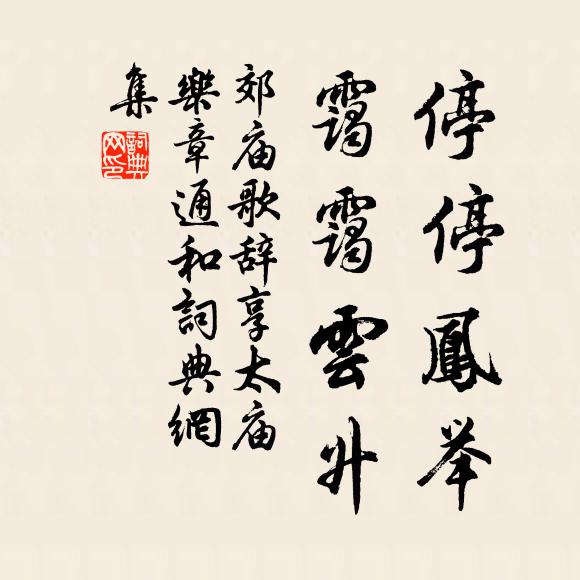 停停鳳举
靄靄雲升
郊庙歌辞享太庙
樂章通和詞典網
集
詞典网印